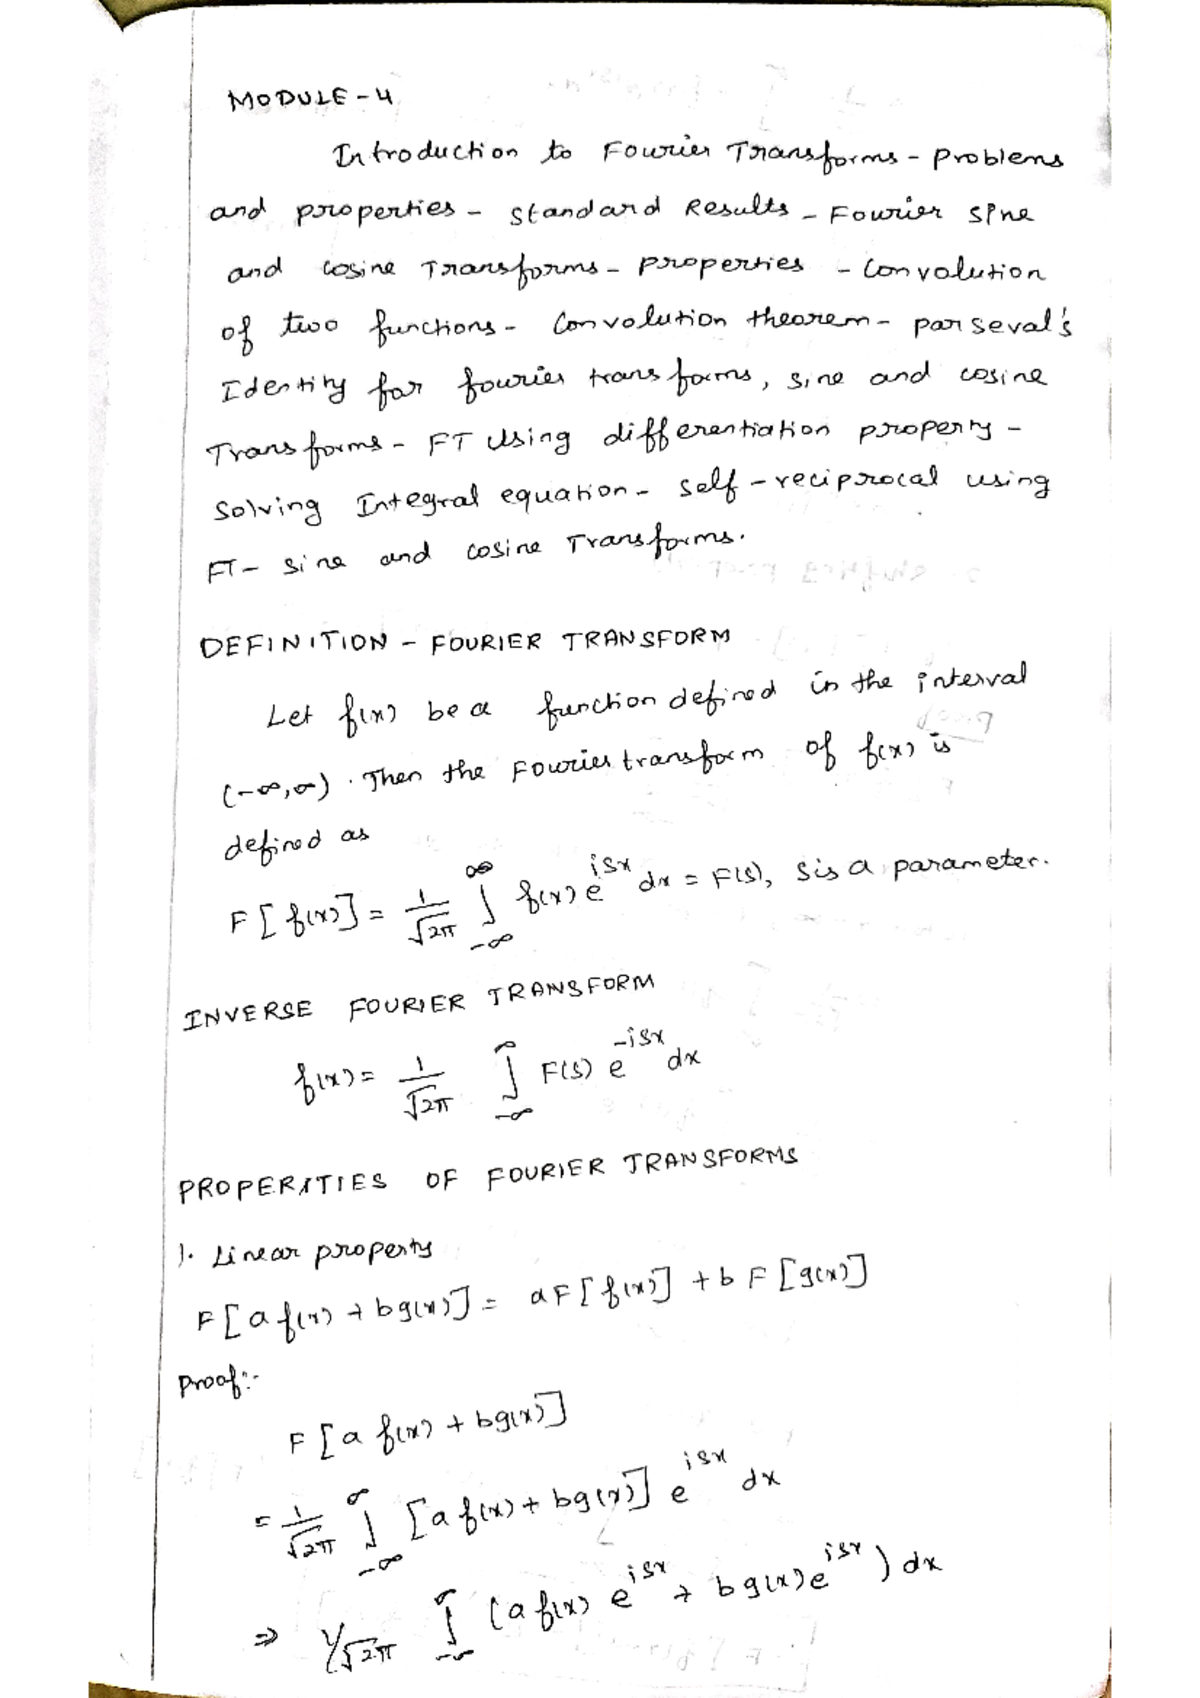 MODULE-4
Introduction to Fourier Transforms - Problems
and properties - Standard Results - Fourier sine
and cosine Transforms - properties - Convolution
of two functions - Convolution theorem - parseval's
Identity for fourier transforms, sine and cosine
Transforms - FT Using differentiation property -
Solving Integral equation - Self-reciprocal using
FT - sine and cosine Transforms.
DEFINITION - FOURIER TRANSFORM
Let f(x) be a function defined in the interval
(-∞,∞). Then the Fourier transform of f(x) is
defined as
F[f(x)] = 1/√2π ∫_{-∞}^{∞} f(x) e^{isx} dx = F(s), s is a parameter.
INVERSE FOURIER TRANSFORM
f(x) = 1/√2π ∫_{-∞}^{∞} F(s) e^{-isx} dx
PROPERITIES OF FOURIER TRANSFORMS
1. Linear property
F[a f(x) + bg(x)] = aF[f(x)] + bF[g(x)]
Proof:-
F[a f(x) + bg(x)]
= 1/√2π ∫_{-∞}^{∞} [a f(x) + bg(x)] e^{isx} dx
⇒ 1/√2π ∫_{-∞}^{∞} (a f(x) e^{isx} + bg(x) e^{isx}) dx